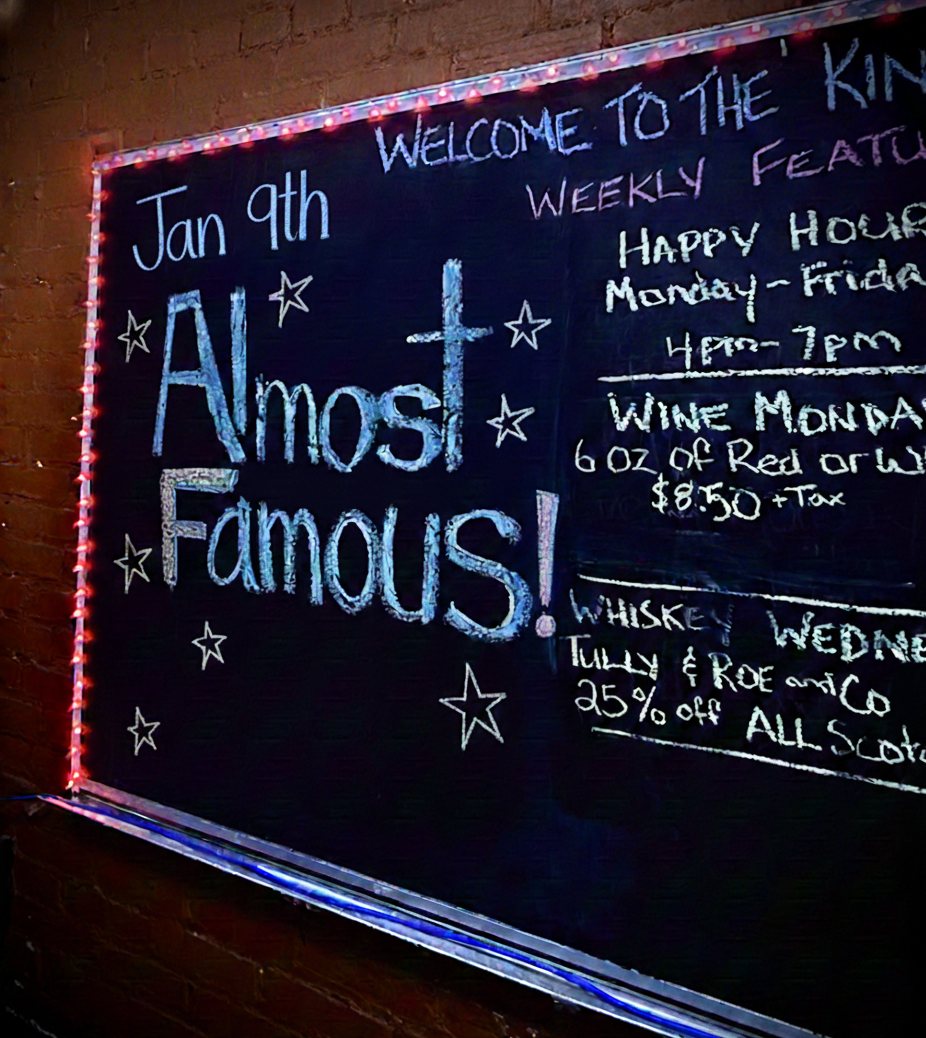 WELCOME TO THE KIN
Jan 9th
Almost
Famous!
WEEKLY FEATU
HAPPY HOUR
Monday - Frida
4pm - 7pm
WINE MONDAY
6 oz of Red or W
$8.50 + Tax
WHISKEY WEDNE
TULLY & ROE and Co
25% off ALL Scot